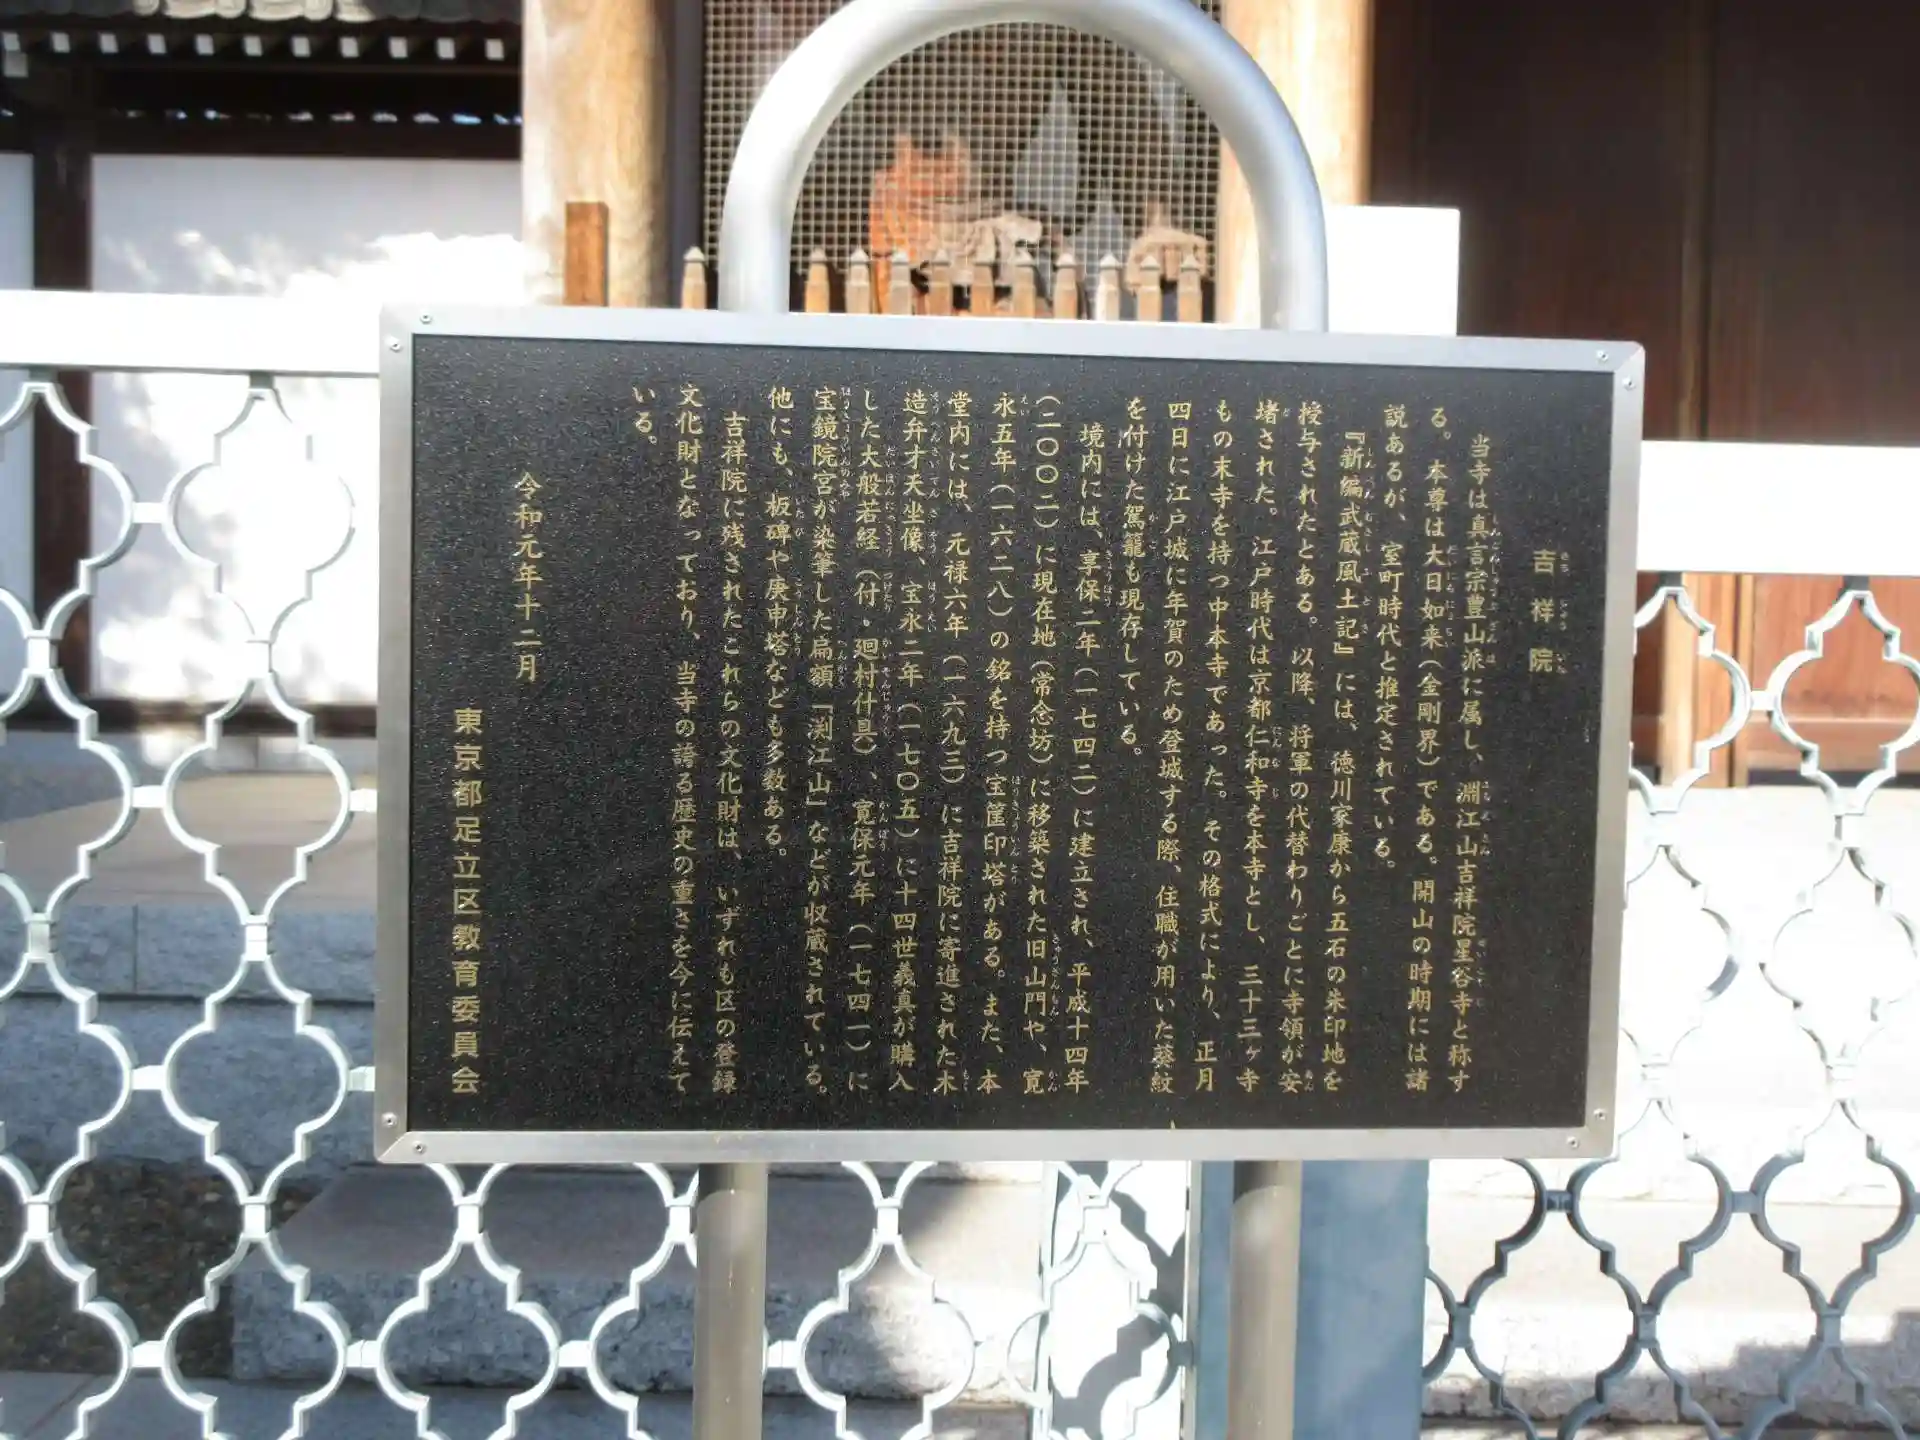 吉祥院
当寺は真言宗豊山派に属し、淵江山吉祥院星谷寺と称す
る。本尊は大日如来(金剛界)である。開山の時期には諸
説あるが、室町時代と推定されている。
『新編武蔵風土記』には、徳川家康から五石の朱印地を
授与されたとある。以降、将軍の代替わりごとに寺領が安
堵された。江戸時代は京都仁和寺を本寺とし、三十三ヶ寺
もの末寺を持つ中本寺であった。その格式により、正月
四日に江戸城に年賀のため登城する際、住職が用いた葵紋
を付けた駕籠も現存している。
境内には、享保二年(一七四二)に建立され、平成十四年
(二〇〇二)に現在地(常念坊)に移築された旧山門や、寛
永五年(一六二八)の銘を持つ宝篋印塔がある。また、本
堂内には、元禄六年(一六九三)に吉祥院に寄進された木
造弁才天坐像、宝永二年(一七〇五)に十四世義真が購入
した大般若経(付・廻村什具)、寛保元年(一七四一)に
宝鏡院宮が染筆した扁額「渕江山」などが収蔵されている。
他にも、板碑や庚申塔なども多数ある。
吉祥院に残されたこれらの文化財は、いずれも区の登録
文化財となっており、当寺の誇る歴史の重さを今に伝えて
いる。
令和元年十二月
東京都足立区教育委員会